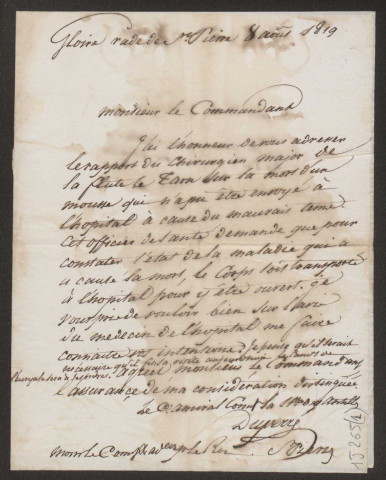 Gloire rade de St Pierre 8 août 1819
Monsieur le Commandant
J'ai l'honneur de vous adresser
le rapport du Chirurgien major de
la flute le Tarn sur la mort d'un
mousse qui n'a pu être envoyé à
l'hopital à cause du mauvais tems
Cet officier de Santé demande que pour
constater l'état de la maladie qui a
causé la mort, le Corps soit transporté
à l'hopital pour y être ouvert. je
vous prie de vouloir bien sur l'avis
du medecin de l'hopital me faire
connaitre vos intentions. je pense qu'il serait
necessaire qu'il fit la visite aujourd'hui
agréez Monsieur le Commandant
l'assurance de ma consideration distinguée
Le C. amiral Comt la
Duperré
Monsr le Comt
1J265(2)